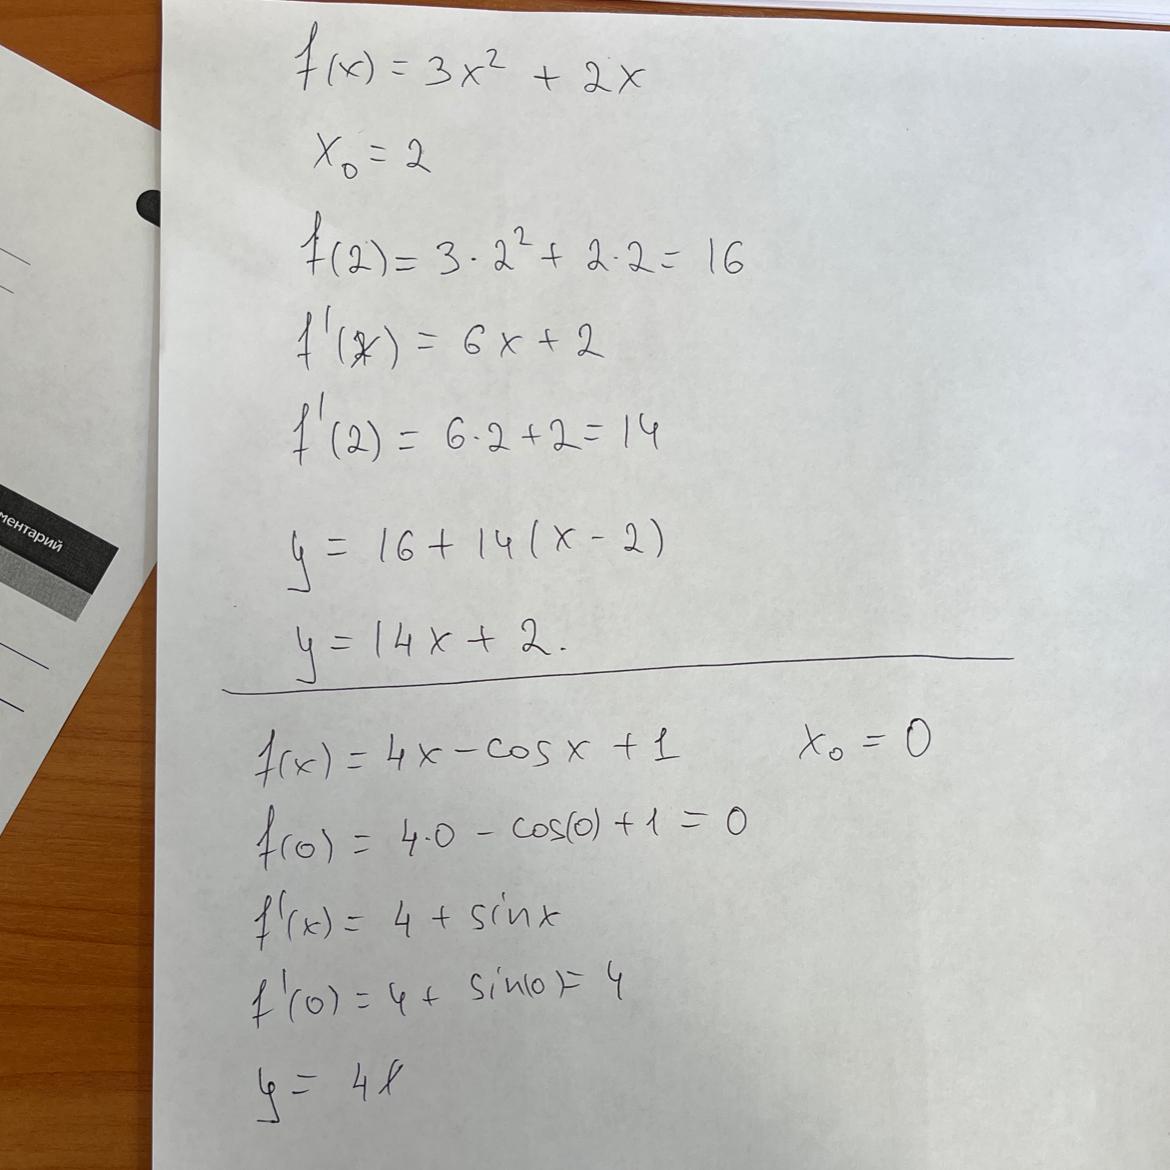 f(x) = 3x² + 2x
x₀ = 2
f(2) = 3 · 2² + 2 · 2 = 16
f'(x) = 6x + 2
f'(2) = 6 · 2 + 2 = 14
ментарий
y = 16 + 14(x - 2)
y = 14x + 2.
f(x) = 4x - cos x + 1 x₀ = 0
f(0) = 4·0 - cos(0) + 1 = 0
f'(x) = 4 + sin x
f'(0) = 4 + sin(0) = 4
y = 4x